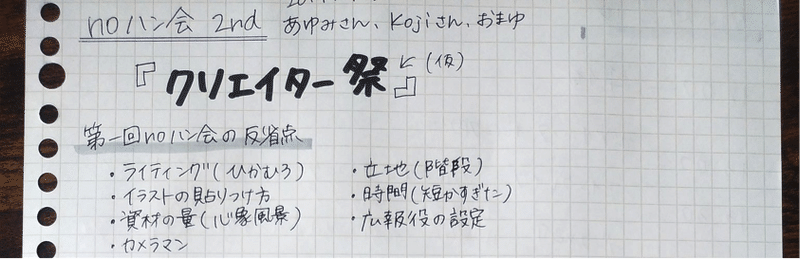 noハン会 2nd
あゆみさん、Kojiさん、おまゆ
『クリエイター祭』(仮)
第一回noハン会の反省点
・ライティング(ひかむろ)
・イラストの貼りつけ方
・資材の量(心象風景)
・カメラマン
・立地(階段)
・時間(短かすぎた)
・広報役の設定